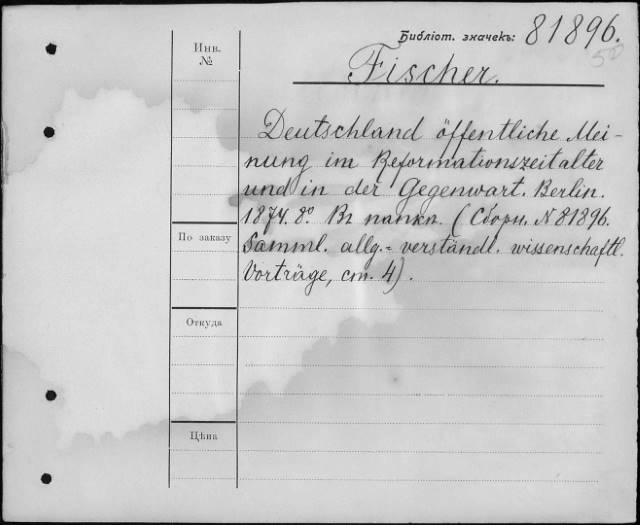 Библіот. значекъ: 81896.
50
Инв. №
Fischer.
Deutschland öffentliche Mei-
nung im Reformationszeitalter
und in der Gegenwart. Berlin.
1874. 8º. Въ папкп. (Сборн. N 81896.
По заказу
Samml. allg.= verständl. wissenschaftl.
Vorträge, ст. 4).
Откуда
Цѣна